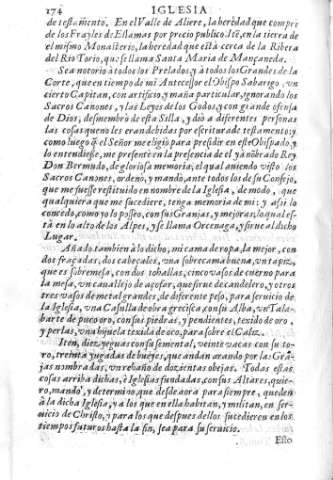 174 IGLESIA
de testamẽto. En el Valle de Aliere, la heredad que compre
de los Frayles de Ellamas por precio publico. Itẽ, en la tierra de
el mismo Monasterio, la heredad que està cerca de la Ribera
del Rio Torio, que se llama Santa Maria de Mançaneda.
Sea notorio à todos los Prelados, y à todos los Grandes de la
Corte, que en tiempo de mi Antecessor el Obispo Sabarigo, vn
cierto Capitan, con artificio, y maña particular, ignorando los
Sacros Canones, y las Leyes de los Godos, y con grande ofensa
de Dios, desmembrò de esta Silla, y diò a diferentes personas
las cosas que no les eran debidas por escritura de testamento: y
como luego q̃ el Señor me eligiò para presidir en este Obispado, y
lo entendiesse, me presentè en la presencia de el yà
Don Bermudo, de gloriosa memoria, el qual auiendo visto los
Sacros Canones, ordenò, y mandò, ante todos los de su Consejo,
que me fuesse restituido en nombre de la Iglesia, de modo, que
qualquiera que me sucediere, tenga memoria de mi: y assi lo
concedo, como yo lo posseo, con sus Granjas, y mejoras, lo qual es-
tà en lo alto de los Alpes, y se llama Orcenaga, y sirue al dicho
Lugar.
Añado tambien à lo dicho, mi cama de ropa, la mejor, con
dos fraçadas, dos cabeçales, vna sobrecama buena, vn tapiz
que es sobremesa, con dos toballas, cinco vasos de cuerno para
la mesa, vn cauallejo de açofar, que sirue de candelero, y otros
tres vasos de metal grandes, de diferente peso, para seruicio de
la Iglesia, vna Casulla de obra grecisca con su Alba, vn Tala-
barte de puro oro, con sus piedras, y pendientes, texido de oro,
y perlas, vna hijuela texida de oro, para sobre el Caliz.
Iten, diez yeguas con su semental, veinte vacas con su to-
ro, treinta yugadas de bueyes, que andan arando por las Grã-
jas nombradas, vn rebaño de docientas obejas. Todas estas
cosas arriba dichas, è Iglesias fundadas, con sus Altares, quie-
ro, mando, y determino, que desde aora para siempre, queden
à la dicha Iglesia, y a los que en ella habitan, y militan, en ser-
uicio de Christo, y para los que despues dellos sucedieren en los
tiempos futuros hasta la fin, sea para su seruicio.
Esto